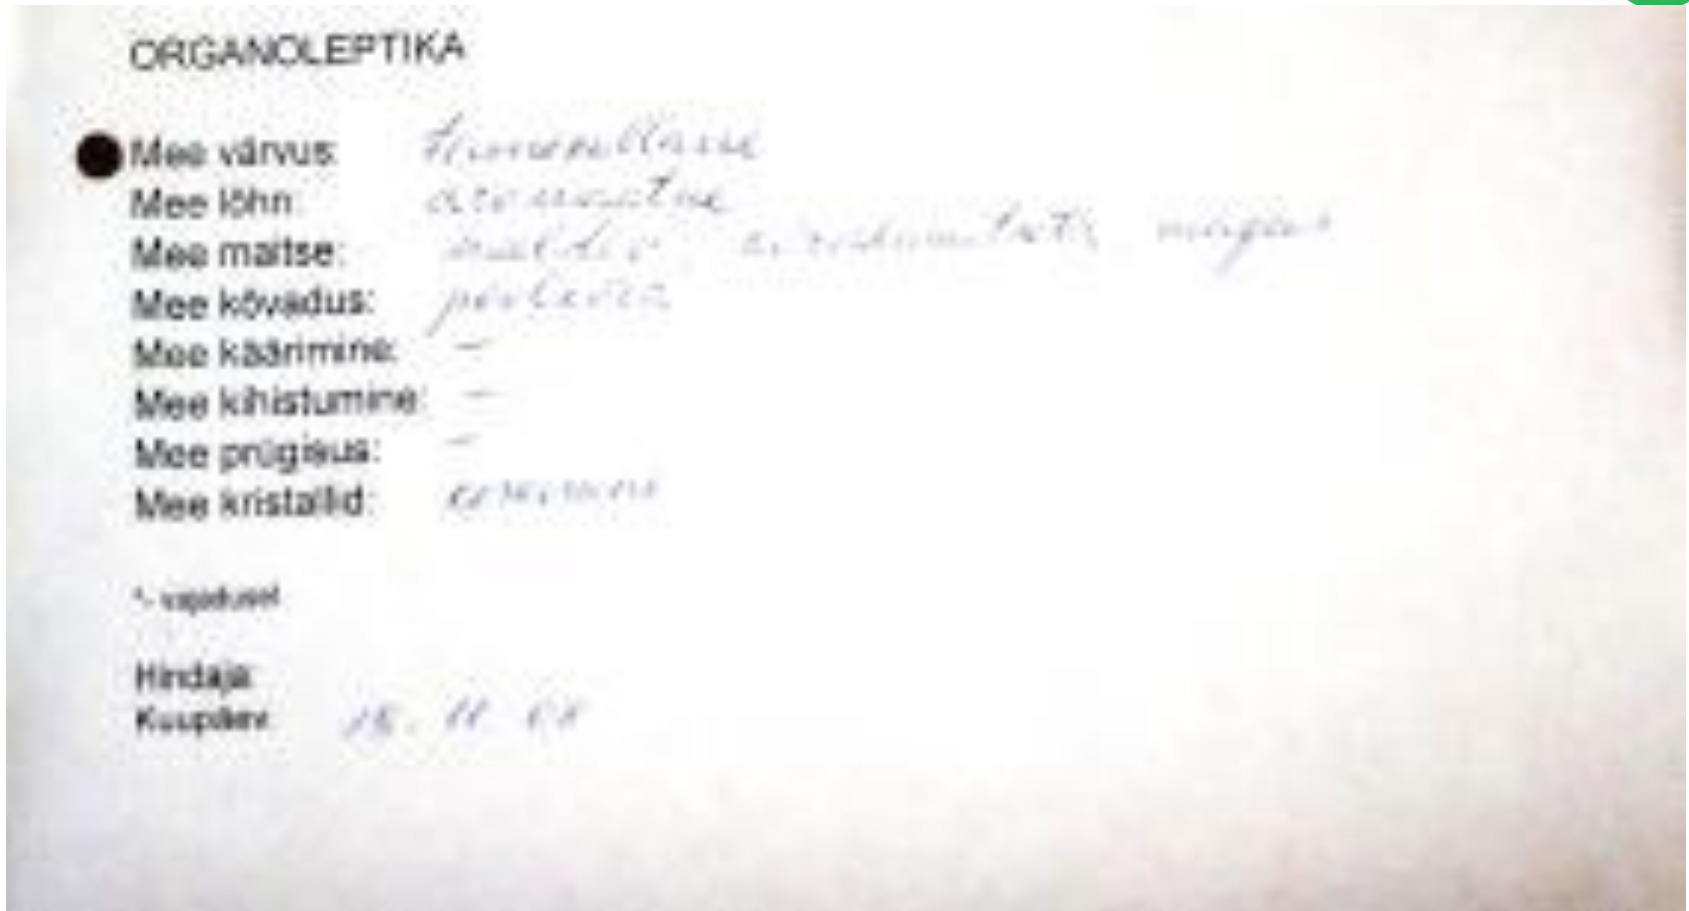 ORGANOLEPTIKA
Mee värvus: tumekollane
Mee lõhn: aromaatne
Mee maitse: magus
Mee kõvadus: poolkõva
Mee käärimine: –
Mee kihistumine: –
Mee prügisus: –
Mee kristallid:
*- vajadusel
Hindaja:
Kuupäev: 18. 11